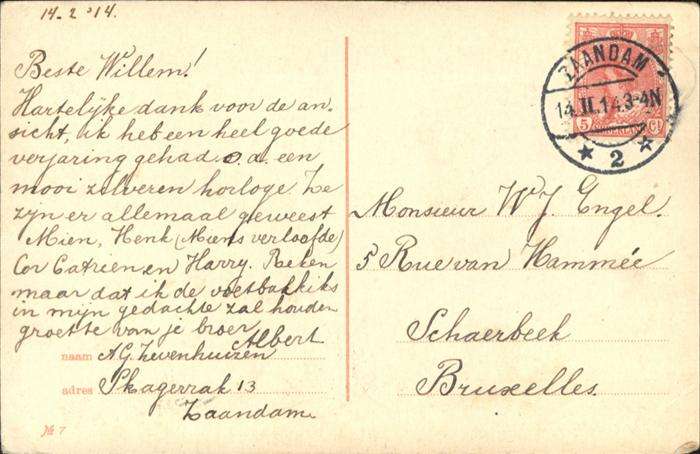 14.2.'14.
Beste Willem!
Hartelijke dank voor de an-
sicht, ik heb een heel goede
verjaring gehad o.a. een
mooi zilveren horloge. Ze
zijn er allemaal geweest
Mien, Henk (Miens verloofde)
Cor Catrien en Harry. Reken
maar dat ik de
in mijn gedachte zal houden
groette van je broer
Albert
naam A.G. Zevenhuizen
adres Skagerrak 13
Zaandam
№ 7
ZAANDAM
14.II.14.3-4N
2
5 Ct
Monsieur W J. Engel.
5 Rue van Hammée
Schaerbeek
Bruxelles.